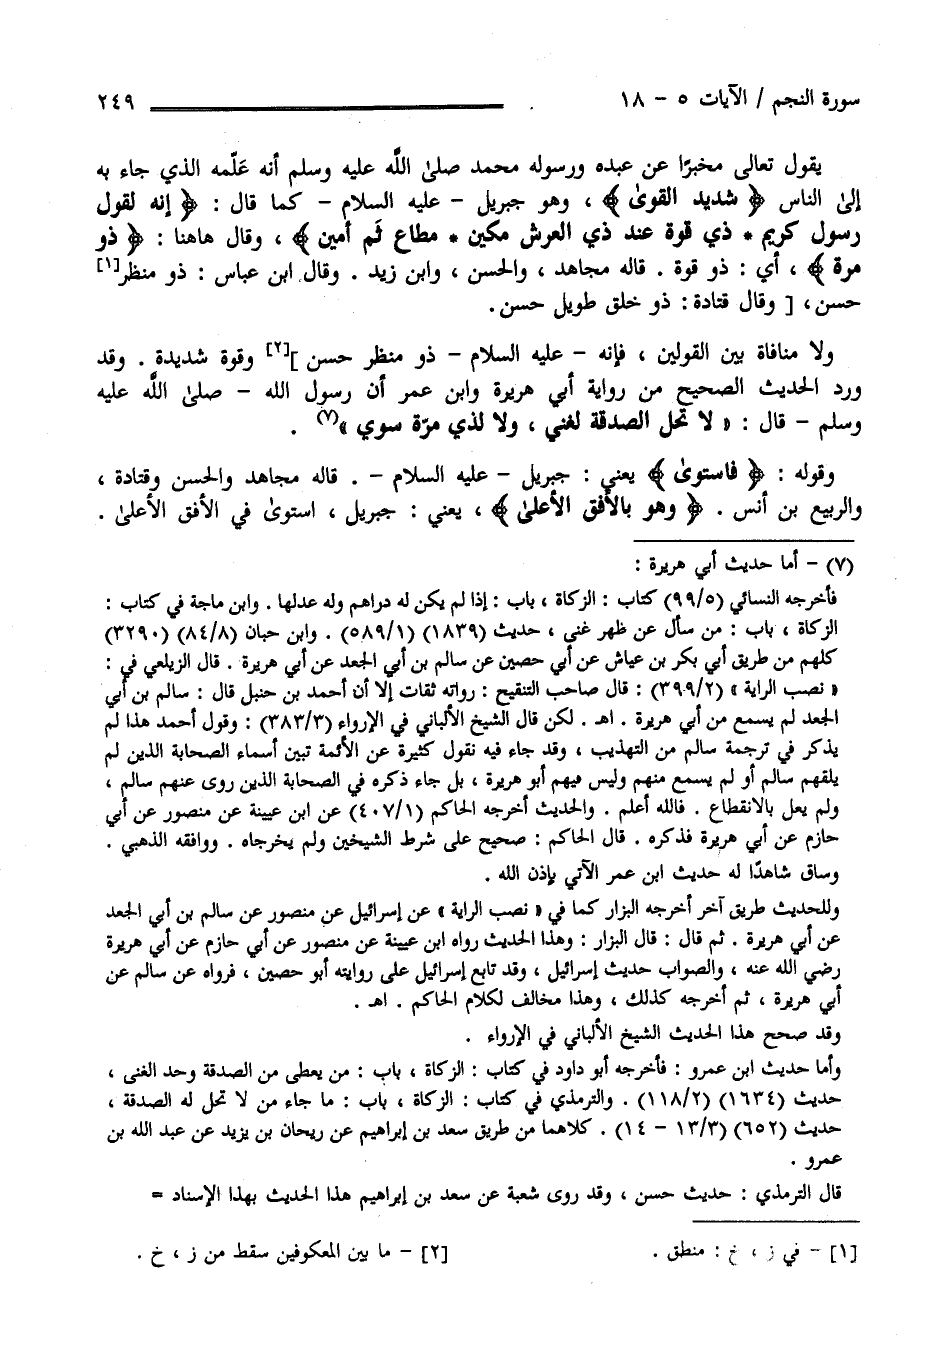 سورة النجم / الآيات ٥ - ١٨ ٢٤٩
يقول تعالى مخبرًا عن عبده ورسوله محمد صلىٰ اللَّه عليه وسلم أنه عَلّمه الذي جاء به
إلىٰ الناس ﴿ شديد القوىٰ ﴾ ، وهو جبريل - عليه السلام - كما قال : ﴿ إنه لقول
رسول كريم * ذي قوة عند ذي العرش مكين * مطاع ثَم أمين ﴾ ، وقال هاهنا : ﴿ ذو
مرة ﴾ ، أي : ذو قوة . قاله مجاهد ، والحسن ، وابن زيد . وقال ابن عباس : ذو منظر[١]
حسن ، [ وقال قتادة : ذو خلق طويل حسن .
ولا منافاة بين القولين ، فإنه - عليه السلام - ذو منظر حسن ][٢] وقوة شديدة . وقد
ورد الحديث الصحيح من رواية أبي هريرة وابن عمر أن رسول الله - صلىٰ اللَّه عليه
وسلم - قال : « لا تحل الصدقة لغني ، ولا لذي مرّة سوي »(٧) .
وقوله : ﴿ فاستوىٰ ﴾ يعني : جبريل - عليه السلام - . قاله مجاهد والحسن وقتادة ،
والربيع بن أنس . ﴿ وهو بالأفق الأعلىٰ ﴾ ، يعني : جبريل ، استوىٰ في الأفق الأعلىٰ .
(٧) - أما حديث أبي هريرة :
فأخرجه النسائي (٩٩/٥) كتاب : الزكاة ، باب : إذا لم يكن له دراهم وله عدلها . وابن ماجة في كتاب :
الزكاة ، باب : من سأل عن ظهر غنى ، حديث (١٨٣٩) (٥٨٩/١) . وابن حبان (٨٤/٨) (٣٢٩٠)
كلهم من طريق أبي بكر بن عياش عن أبي حصين عن سالم بن أبي الجعد عن أبي هريرة . قال الزيلعي في :
« نصب الراية » (٣٩٩/٢) : قال صاحب التنقيح : رواته ثقات إلا أن أحمد بن حنبل قال : سالم بن أبي
الجعد لم يسمع من أبي هريرة . اهـ . لكن قال الشيخ الألباني في الإرواء (٣٨٣/٣) : وقول أحمد هذا لم
يذكر في ترجمة سالم من التهذيب ، وقد جاء فيه نقول كثيرة عن الأئمة تبين أسماء الصحابة الذين لم
يلقهم سالم أو لم يسمع منهم وليس فيهم أبو هريرة ، بل جاء ذكره في الصحابة الذين روى عنهم سالم ،
ولم يعل بالانقطاع . فالله أعلم . والحديث أخرجه الحاكم (٤٠٧/١) عن ابن عيينة عن منصور عن أبي
حازم عن أبي هريرة فذكره . قال الحاكم : صحيح على شرط الشيخين ولم يخرجاه . ووافقه الذهبي .
وساق شاهدًا له حديث ابن عمر الآتي بإذن الله .
وللحديث طريق آخر أخرجه البزار كما في « نصب الراية » عن إسرائيل عن منصور عن سالم بن أبي الجعد
عن أبي هريرة . ثم قال : قال البزار : وهذا الحديث رواه ابن عيينة عن منصور عن أبي حازم عن أبي هريرة
رضي الله عنه ، والصواب حديث إسرائيل ، وقد تابع إسرائيل على روايته أبو حصين ، فرواه عن سالم عن
أبي هريرة ، ثم أخرجه كذلك ، وهذا مخالف لكلام الحاكم . اهـ .
وقد صحح هذا الحديث الشيخ الألباني في الإرواء .
وأما حديث ابن عمرو : فأخرجه أبو داود في كتاب : الزكاة ، باب : من يعطى من الصدقة وحد الغنى ،
حديث (١٦٣٤) (١١٨/٢) . والترمذي في كتاب : الزكاة ، باب : ما جاء من لا تحل له الصدقة ،
حديث (٦٥٢) (١٣/٣ - ١٤) . كلاهما من طريق سعد بن إبراهيم عن ريحان بن يزيد عن عبد الله بن
عمرو .
قال الترمذي : حديث حسن ، وقد روى شعبة عن سعد بن إبراهيم هذا الحديث بهذا الإسناد =
[١] - في ز ، خ : منطق . [٢] - ما بين المعكوفين سقط من ز ، خ .